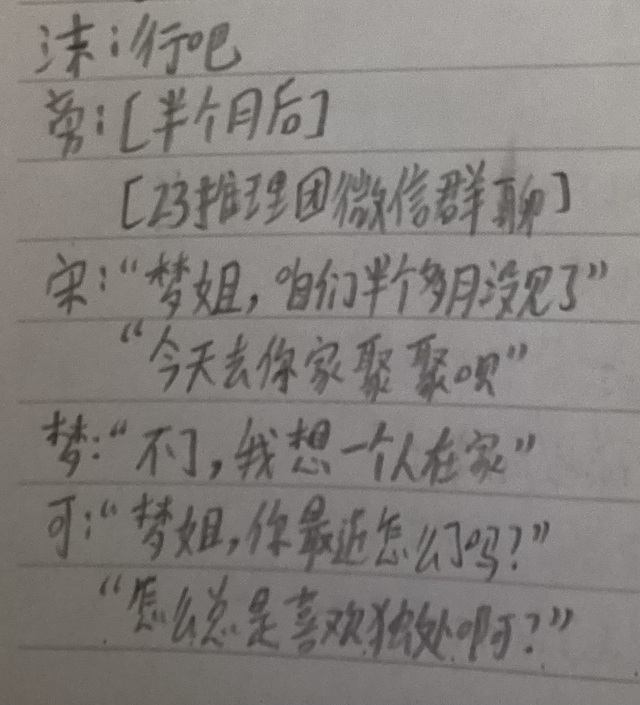 沫:行吧
旁:[半个月后]
[23推理团微信群聊]
宋:“梦姐,咱们半个多月没见了”
“今天去你家聚聚呗”
梦:“不了,我想一个人在家”
可:“梦姐,你最近怎么了吗?”
“怎么总是喜欢独处啊?”